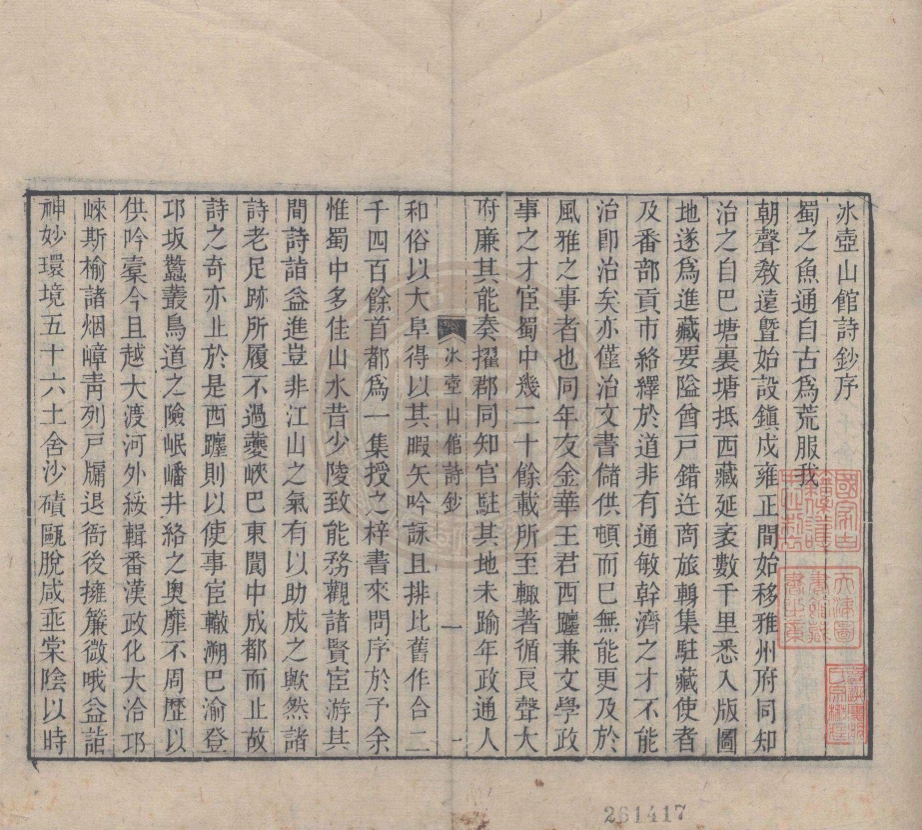 冰壺山館詩鈔序
蜀之魚通自古爲荒服我
朝聲教遠曁始設鎮戍雍正間始移雅州府同知
治之自巴塘裏塘抵西藏延袤數千里悉入版圖
地遂爲進藏要隘酋戸錯迕商旅轉集駐藏使者
及番部貢市絡繹於道非有通敏幹濟之才不能
治卽治矣亦僅治文書儲供頓而已無能更及於
風雅之事者也同年友金華王君西躔兼文學政
事之才宦蜀中幾二十餘載所至輙著循良聲大
府廉其能奏擢郡同知官駐其地未踰年政通人
冰壺山館詩鈔
一
和俗以大阜得以其暇矢吟詠且排比舊作合二
千四百餘首都爲一集授之梓書來問序於予余
惟蜀中多佳山水昔少陵致能務觀諸賢宦游其
間詩詣益進豈非江山之氣有以助成之歟然諸
詩老足跡所履不過夔峽巴東閬中成都而止故
詩之奇亦止於是西躔則以使事宦轍溯巴渝登
邛坂蠶叢鳥道之險岷嶓井絡之奥靡不周歷以
供吟橐今且越大渡河外綏輯番漢政化大洽邛
崍斯榆諸烟嶂靑列戸牖退衙後擁簾微哦益詣
神妙環境五十六土舍沙磧甌脫咸歪棠陰以時
261417